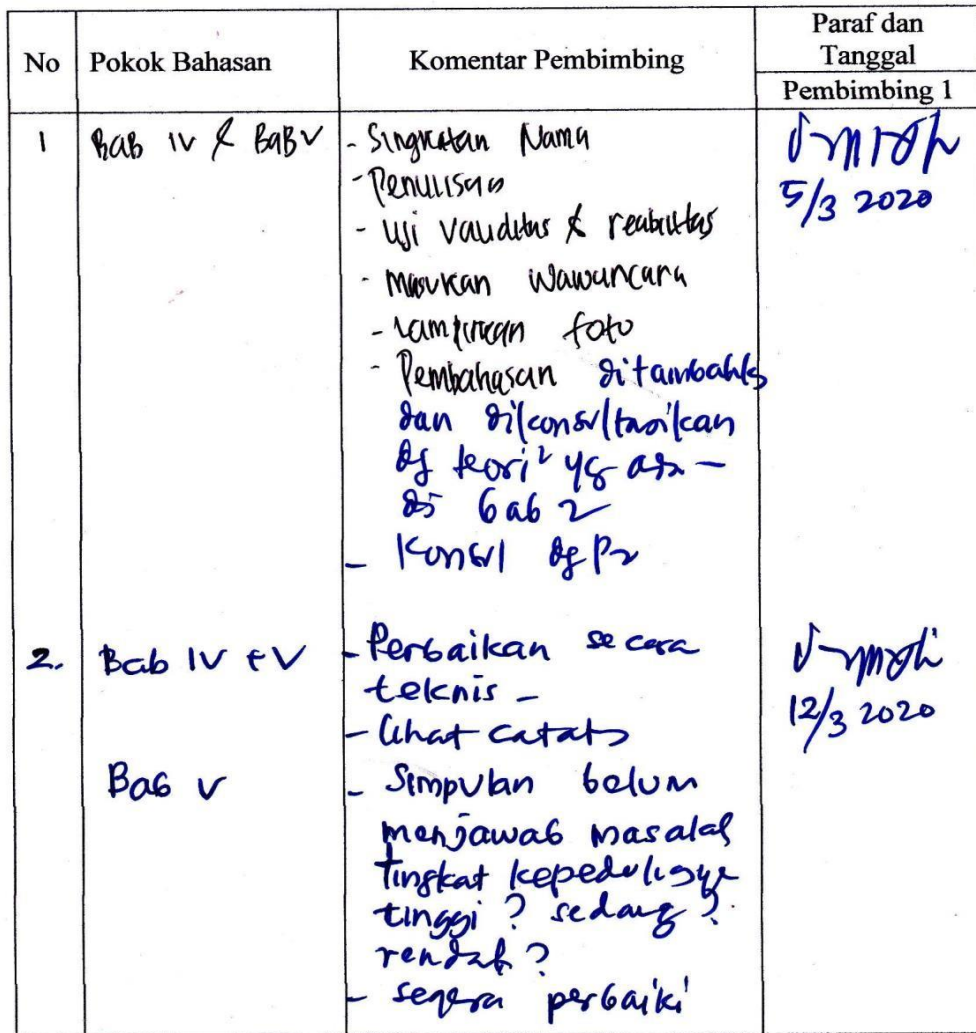 No Pokok Bahasan Komentar Pembimbing Paraf dan
Tanggal
Pembimbing 1
1 Bab IV & Bab V - Singkatan Nama
5/3 2020
- Penulisan
- Uji validitas & reabilitas
- Masukan Wawancara
- Lampirkan foto
- Pembahasan ditambahk
dan dikonsultasikan
dg teori² yg ada -
di bab 2
- Konsul dg P2
2. Bab IV + V - Perbaikan secara
teknis -
12/3 2020
- Lihat catat
Bab V - Simpulan belum
menjawab masalah
tingkat kepeduliannya
tinggi? sedang?
rendah?
- segera perbaiki